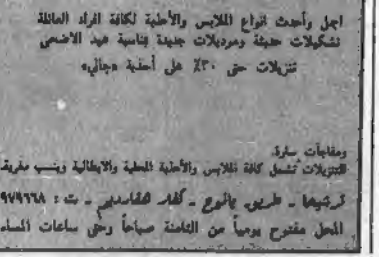 اجمل وأحدث انواع الملابس والأحذية لكافة افراد العائلة
تشكيلات حديثة وموديلات جديدة بمناسبة عيد الاضحى
تنزيلات حتى ٣٠٪ على أحذية «جالي»
ومفاجآت سارة.
التنزيلات تشمل كافة الملابس والأحذية المحلية والايطالية وبنسب مغرية.
ترشيحا ـ طريق يانوح ـ كفار هفراديم ـ ت : ٩٧٩٦٦٨
المحل مفتوح يومياً من الثامنة صباحاً وحتى ساعات المساء